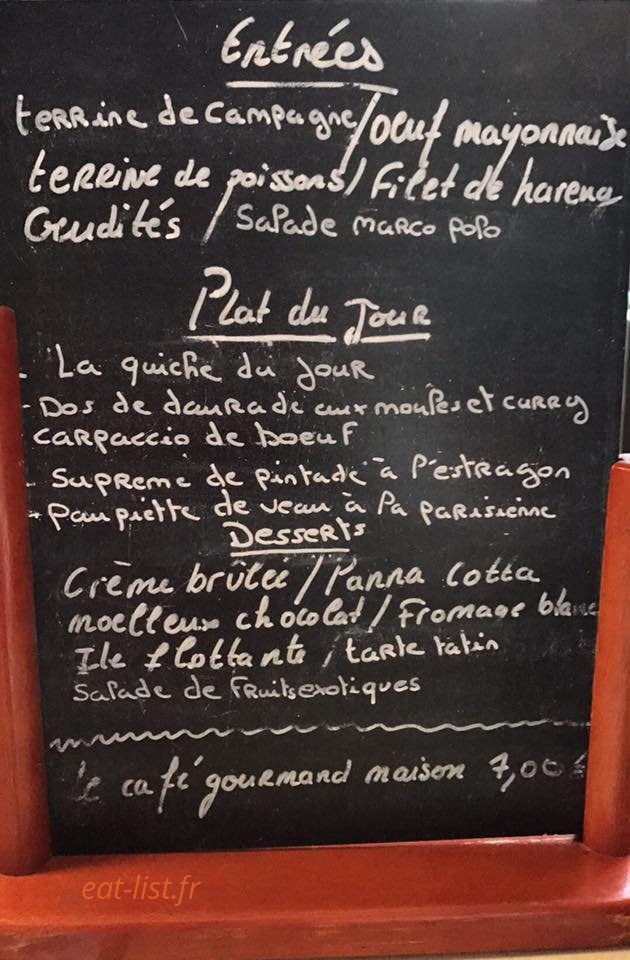 Entrées
terrine de campagne / oeuf mayonnaise
terrine de poissons / Filet de hareng
Crudités / Salade marco polo
Plat du Jour
- La quiche du jour
- Dos de daurade aux moules et curry
carpaccio de boeuf
- Supreme de pintade à l'estragon
- paupiette de veau à la parisienne
Desserts
Crème brûlée / Panna Cotta
moelleux chocolat / Fromage blanc
Ile flottante / tarte tatin
Salade de Fruits exotiques
le café gourmand maison 7,00€
eat-list.fr